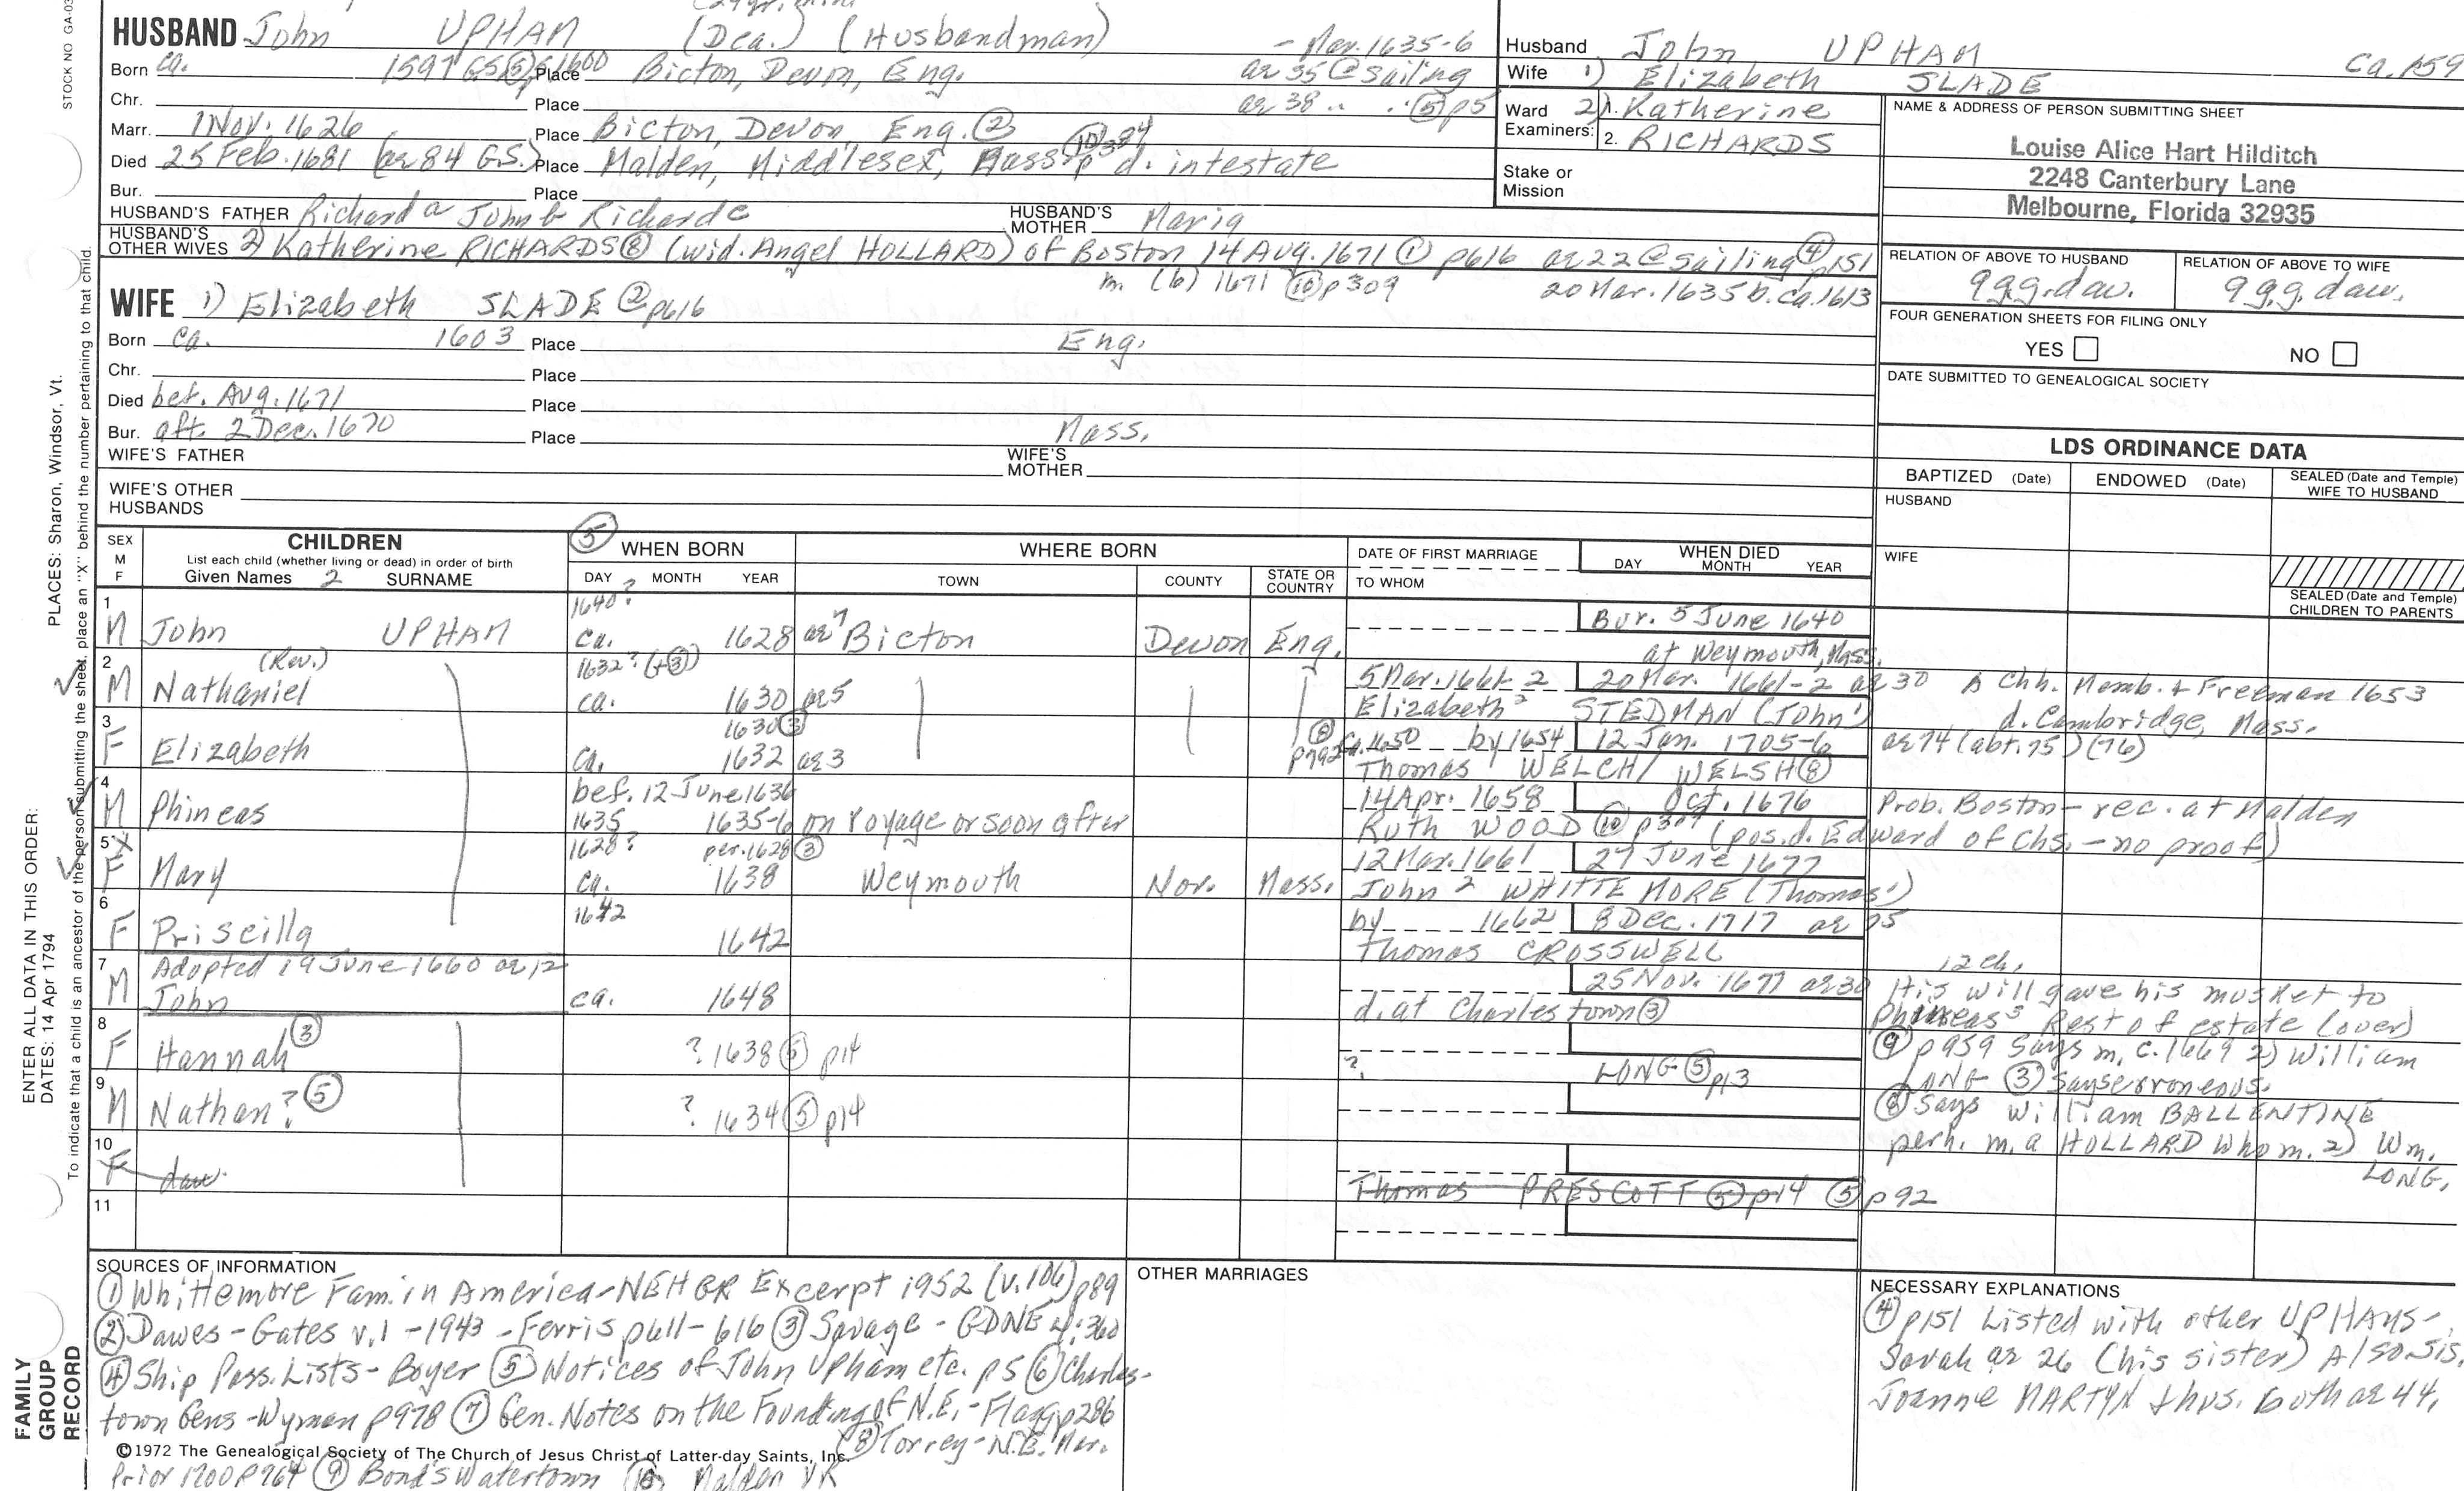 STOCK NO GA-03
HUSBAND John UPHAM (Dea.) (Husbandman) - Mar. 1635-6
Born ca. 1597 G.S. ⑤ 1600 Place Bicton, Devon, Eng. ae 35 @ sailing
Chr. Place ae 38 .. .. ⑤ p5
Marr. 1 Nov. 1626 Place Bicton, Devon, Eng. ②
Died 25 Feb. 1681 (ae 84 G.S.) Place Malden, Middlesex, Mass ⑩ p 384 d. intestate
Bur. Place
HUSBAND'S FATHER Richard a John b Richarde HUSBAND'S MOTHER Maria
HUSBAND'S OTHER WIVES 2) Katherine RICHARDS ⑧ (wid. Angel HOLLARD) of Boston 14 Aug. 1671 ① p616 ae 22 @ sailing ④ p151
m. (6) 1671 ⑩ p309 20 Mar. 1635 b. ca. 1613
WIFE 1) Elizabeth SLADE ② p616
Born ca. 1603 Place Eng.
Chr. Place
Died bef. Aug. 1671 Place
Bur. aft. 2 Dec. 1670 Place Mass.
WIFE'S FATHER WIFE'S MOTHER
WIFE'S OTHER HUSBANDS
Husband John UPHAM ca. 159
Wife 1) Elizabeth SLADE
Ward Examiners: 2) 1. Katherine
2. RICHARDS
Stake or Mission
NAME & ADDRESS OF PERSON SUBMITTING SHEET
Louise Alice Hart Hilditch
2248 Canterbury Lane
Melbourne, Florida 32935
RELATION OF ABOVE TO HUSBAND RELATION OF ABOVE TO WIFE
9 g.g. dau. 9 g.g. dau.
FOUR GENERATION SHEETS FOR FILING ONLY
YES NO
DATE SUBMITTED TO GENEALOGICAL SOCIETY
LDS ORDINANCE DATA
BAPTIZED (Date) ENDOWED (Date) SEALED (Date and Temple) WIFE TO HUSBAND
HUSBAND
WIFE
SEALED (Date and Temple) CHILDREN TO PARENTS
SEX M F CHILDREN ⑤ WHEN BORN WHERE BORN DATE OF FIRST MARRIAGE WHEN DIED
List each child (whether living or dead) in order of birth
Given Names 2 SURNAME DAY MONTH YEAR TOWN COUNTY STATE OR COUNTRY TO WHOM DAY MONTH YEAR
1 1640? Bur. 5 June 1640
M John UPHAM ca. 1628 ae 7 Bicton Devon Eng. at Weymouth, Mass.
2 (Rev.) 1632? (+③) 5 Mar. 1661-2 20 Mar. 1661-2 ae 30 A Chh. Memb. + Freeman 1653
M Nathaniel ca. 1630 ae 5 Elizabeth 2 STEDMAN (John 1) d. Cambridge, Mass.
3 1630 ③ ca. 1650 by 1654 12 Jan. 1705-6 ae 74 (abt. 75) (76)
F Elizabeth ca. 1632 ae 3 p792 Thomas WELCH/ WELSH ⑧
4 bef. 12 June 1636 14 Apr. 1658 Oct. 1676 Prob. Boston - rec. at Malden
M Phineas 1635 1635-6 on voyage or soon after Ruth WOOD ⑩ p309 (pos. d. Edward of Chs. - no proof)
5 X 1628? per. 1628 ③ 12 Mar. 1661 27 June 1677
F Mary ca. 1638 Weymouth Nor. Mass. John 2 WHITTEMORE (Thomas 1)
6 1642 by 1662 8 Dec. 1717 ae 75
F Priscilla 1642 Thomas CROSSWELL
12 ch.
7 Adopted 19 June 1660 ae 12 25 Nov. 1677 ae 30 His will gave his musket to
M John ca. 1648 d. at Charlestown ③ Phineas 3 Rest of estate (over)
8 ⑨ p959 says m. c. 1669 2) William
F Hannah ③ ? 1638 ⑤ p14 ? LONG ⑤ p13 LONG ③ says erroneous.
9 ⑧ says William BALLENTINE
M Nathan? ⑤ ? 1634 ⑤ p14 perh. m. a HOLLARD who m. 2) Wm. LONG.
10
F dau. Thomas PRESCOTT ⑤ p14 ⑤ p92
11
SOURCES OF INFORMATION
① Whittemore Fam. in America - NEHGR Excerpt 1952 (v. 106) p89
② Dawes - Gates v.1 - 1943 - Ferris p611 - 616 ③ Savage - GDNE 4:360
④ Ship Pass. Lists - Boyer ⑤ Notices of John Upham etc. p5 ⑥ Charles-
town Gens - Wyman p978 ⑦ Gen. Notes on the Founding of N.E. - Flagg p286
⑧ Torrey - N.E. Mar.
©1972 The Genealogical Society of The Church of Jesus Christ of Latter-day Saints, Inc.
Prior 1700 p764 ⑨ Bond's Watertown ⑩ Malden VR
OTHER MARRIAGES
NECESSARY EXPLANATIONS
④ p151 Listed with other UPHAMS -
Sarah ae 26 (his sister) Also sis.
Joanne MARTYN + hus. both ae 44.
PLACES: Sharon, Windsor, Vt.
To indicate that a child is an ancestor of the person submitting the sheet, place an "X" behind the number pertaining to that child.
ENTER ALL DATA IN THIS ORDER:
DATES: 14 Apr 1794
FAMILY
GROUP
RECORD